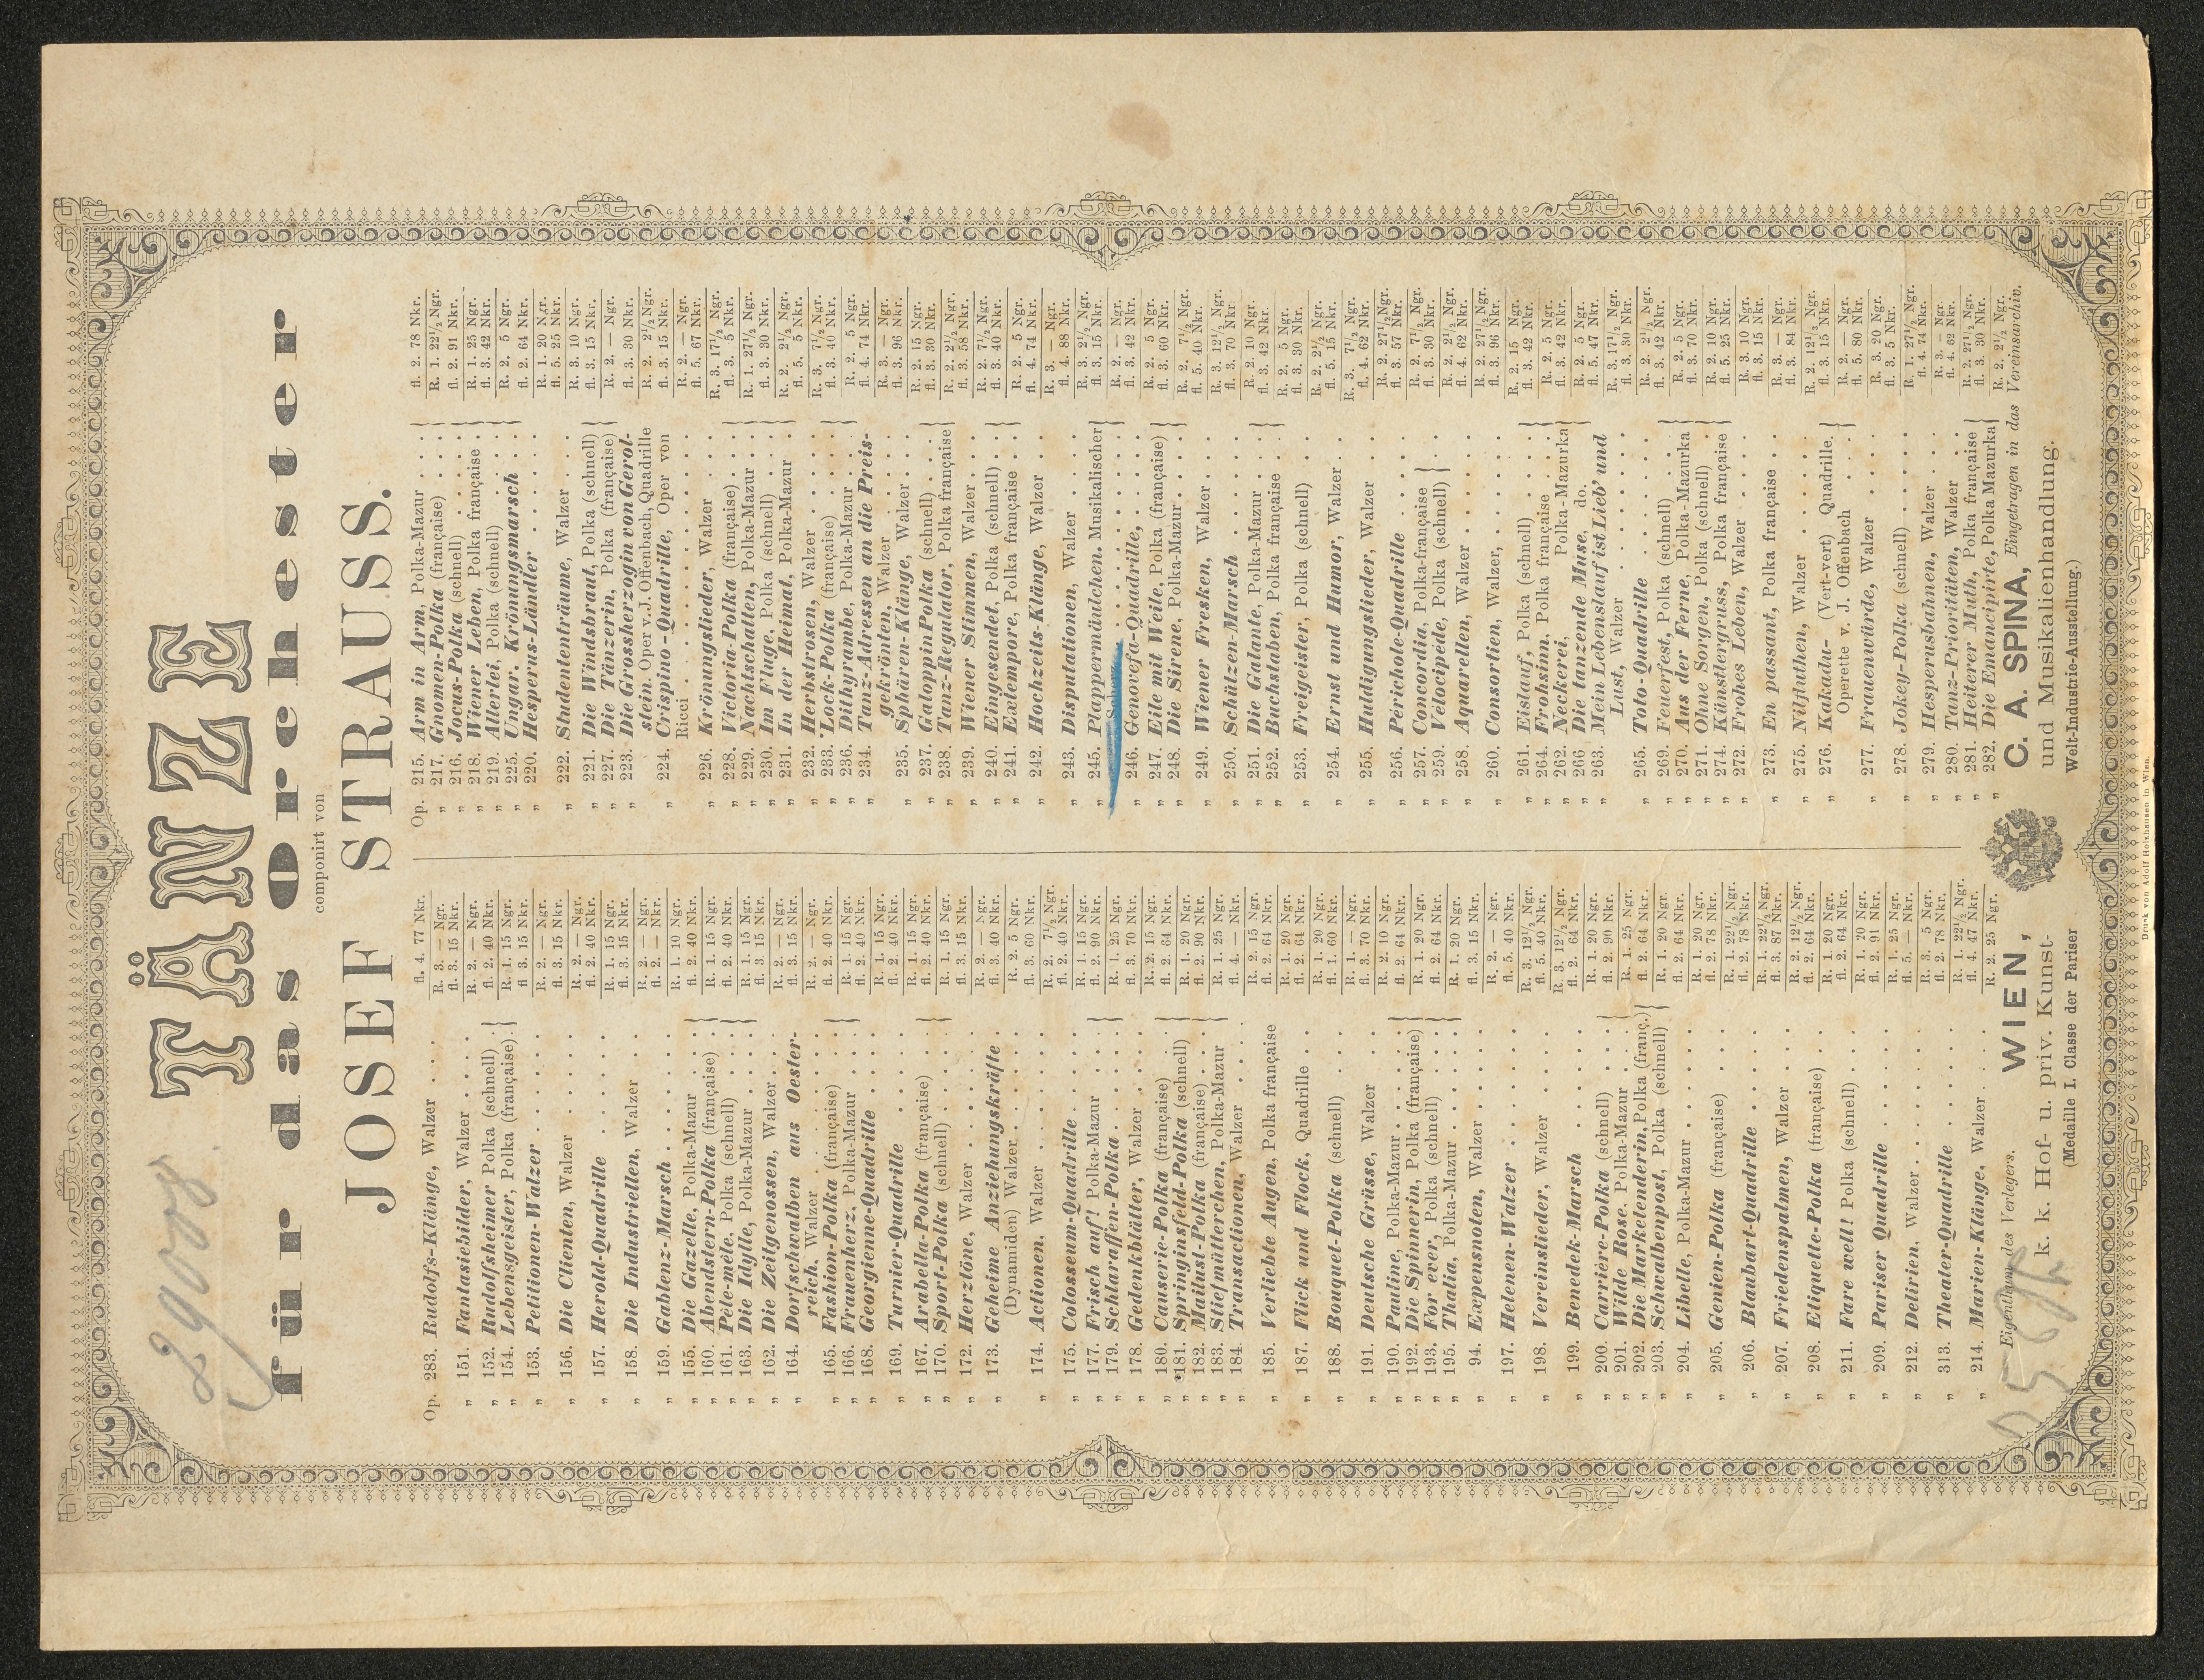 29008
TÄNZE
für das Orchester
componirt von
JOSEF STRAUSS.
Op. 283. Rudolfs-Klänge, Walzer
„ 151. Fantasiebilder, Walzer
„ 152. Rudolfsheimer Polka (schnell)
„ 154. Lebensgeister, Polka (française)
„ 153. Petitionen-Walzer
„ 156. Die Clienten, Walzer
„ 157. Herold-Quadrille
„ 158. Die Industriellen, Walzer
„ 159. Gablenz-Marsch
„ 155. Die Gazelle, Polka-Mazur
„ 160. Abendstern-Polka (française)
„ 161. Pêle-mêle, Polka (schnell)
„ 163. Die Idylle, Polka-Mazur
„ 162. Die Zeitgenossen, Walzer
„ 164. Dorfschwalben aus Oester-
reich, Walzer
„ 165. Fashion-Polka (française)
„ 166. Frauenherz, Polka-Mazur
„ 168. Georgienne-Quadrille
„ 169. Turnier-Quadrille
„ 167. Arabella-Polka (française)
„ 170. Sport-Polka (schnell)
„ 172. Herztöne, Walzer
„ 173. Geheime Anziehungskräfte
(Dynamiden) Walzer
„ 174. Actionen, Walzer
„ 175. Colosseum-Quadrille
„ 177. Frisch auf! Polka-Mazur
„ 179. Schlaraffen-Polka
„ 178. Gedenkblätter, Walzer
„ 180. Causerie-Polka (française)
„ 181. Springinsfeld-Polka (schnell)
„ 182. Mailust-Polka (française)
„ 183. Stiefmütterchen, Polka-Mazur
„ 184. Transactionen, Walzer
„ 185. Verliebte Augen, Polka française
„ 187. Flick und Flock, Quadrille
„ 188. Bouquet-Polka (schnell)
„ 191. Deutsche Grüsse, Walzer
„ 190. Pauline, Polka-Mazur
„ 192. Die Spinnerin, Polka (française)
„ 193. For ever, Polka (schnell)
„ 195. Thalia, Polka-Mazur
„ 94. Expensnoten, Walzer
„ 197. Helenen-Walzer
„ 198. Vereinslieder, Walzer
„ 199. Benedek-Marsch
„ 200. Carrière-Polka (schnell)
„ 201. Wilde Rose. Polka-Mazur
„ 202. Die Marketenderin, Polka (franç.)
„ 203. Schwalbenpost, Polka (schnell)
„ 204. Libelle, Polka-Mazur
„ 205. Genien-Polka (française)
„ 206. Blaubart-Quadrille
„ 207. Friedenspalmen, Walzer
„ 208. Etiquette-Polka (française)
„ 211. Fare well! Polka (schnell)
„ 209. Pariser Quadrille
„ 212. Delirien, Walzer
„ 313. Theater-Quadrille
„ 214. Marien-Klänge, Walzer
fl. 4. 77 Nkr.
R. 3. — Ngr.
fl. 3. 15 Nkr.
R. 2. — Ngr.
fl. 2. 40 Nkr.
R. 1. 15 Ngr.
fl 3. 15 Nkr.
R. 2. — Ngr.
fl. 3. 15 Nkr.
R. 2. — Ngr.
fl. 2. 40 Nkr.
R. 1. 15 Ngr.
fl. 3. 15 Nkr.
R. 2. — Ngr.
fl. 2. — Nkr.
R. 1. 10 Ngr.
fl. 2. 40 Nkr.
R. 1. 15 Ngr.
fl. 2. 40 Nkr.
R. 1. 15 Ngr.
fl. 3. 15 Nkr.
R. 2. — Ngr.
fl. 3. 15 Nkr.
R. 2. — Ngr.
fl. 2. 40 Nkr.
R. 1. 15 Ngr.
fl. 2. 40 Nkr.
R. 1. 15 Ngr.
fl. 2. 40 Nkr.
R. 1. 15 Ngr.
fl. 2. 40 Nkr.
R. 1. 15 Ngr.
fl. 3. 15 Nkr.
R. 2. — Ngr.
fl. 3. 40 Nkr.
R. 2. 5 Ngr.
fl. 3. 60 Nkr.
R. 2. 7½ Ngr.
fl. 2. 40 Nkr.
R. 1. 15 Ngr.
fl. 2. 90 Nkr.
R. 1. 25 Ngr.
fl. 3. 70 Nkr.
R. 2. 15 Ngr.
fl. 2. 64 Nkr.
R. 1. 20 Ngr.
fl. 2. 90 Nkr.
R. 1. 25 Ngr.
fl. 4. — Nkr.
R. 2. 15 Ngr.
fl. 2. 64 Nkr.
R. 1. 20 Ngr.
fl. 2. 64 Nkr.
R. 1. 20 Ngr.
fl. 1. 60 Nkr.
R. 1. — Ngr.
fl. 3. 70 Nkr.
R. 2. 10 Ngr.
fl. 2. 64 Nkr.
R. 1. 20 Ngr.
fl. 2. 64 Nkr.
R. 1. 20 Ngr.
fl. 3. 15 Nkr.
R. 2. — Ngr.
fl. 5. 40 Nkr.
R. 3. 12½ Ngr.
fl. 5. 40 Nkr.
R. 3. 12½ Ngr.
fl. 2. 64 Nkr.
R. 1. 20 Ngr.
fl. 2. 90 Nkr.
R. 1. 25 Ngr.
fl. 2. 64 Nkr.
R. 1. 20 Ngr.
fl. 2. 64 Nkr.
R. 1. 20 Ngr.
fl. 2. 78 Nkr.
R. 1. 22½ Ngr.
fl. 2. 78 Nkr.
R. 1. 22½ Ngr.
fl. 3. 87 Nkr.
R. 2. 12½ Ngr.
fl. 2. 64 Nkr.
R. 1. 20 Ngr.
fl. 2. 64 Nkr.
R. 1. 20 Ngr.
fl. 2. 91 Nkr.
R. 1. 25 Ngr.
fl. 5. — Nkr.
R. 3. 5 Ngr.
fl. 2. 78 Nkr.
R. 1. 22½ Ngr.
fl. 4. 47 Nkr.
R. 2. 25 Ngr.
Op. 215. Arm in Arm, Polka-Mazur
„ 217. Gnomen-Polka (française)
„ 216. Jocus-Polka (schnell)
„ 218. Wiener Leben, Polka française
„ 219. Allerlei, Polka (schnell)
„ 225. Ungar. Krönungsmarsch
„ 220. Hesperus-Ländler
„ 222. Studententräume, Walzer
„ 221. Die Windsbraut, Polka (schnell)
„ 227. Die Tänzerin, Polka (française)
„ 223. Die Grossherzogin von Gerol-
stein. Oper v. J. Offenbach, Quadrille
„ 224. Crispino-Quadrille, Oper von
Ricci
„ 226. Krönungslieder, Walzer
„ 228. Victoria-Polka (française)
„ 229. Nachtschatten, Polka-Mazur
„ 230. Im Fluge, Polka (schnell)
„ 231. In der Heimat, Polka-Mazur
„ 232. Herbstrosen, Walzer
„ 233. Lock-Polka (française)
„ 236. Dithyrambe, Polka-Mazur
„ 234. Tanz-Adressen an die Preis-
gekrönten, Walzer
„ 235. Sphären-Klänge, Walzer
„ 237. Galoppin Polka (schnell)
„ 238. Tanz-Regulator, Polka française
„ 239. Wiener Stimmen, Walzer
„ 240. Eingesendet, Polka (schnell)
„ 241. Extempore, Polka française
„ 242. Hochzeits-Klänge, Walzer
„ 243. Disputationen, Walzer
„ 245. Plappermäulchen. Musikalischer
Scherz
„ 246. Genovefa-Quadrille,
„ 247. Eile mit Weile, Polka (française)
„ 248. Die Sirene, Polka-Mazur
„ 249. Wiener Fresken, Walzer
„ 250. Schützen-Marsch
„ 251. Die Galante, Polka-Mazur
„ 252. Buchstaben, Polka française
„ 253. Freigeister, Polka (schnell)
„ 254. Ernst und Humor, Walzer
„ 255. Huldigungslieder, Walzer
„ 256. Perichole-Quadrille
„ 257. Concordia, Polka-française
„ 259. Velocipède, Polka (schnell)
„ 258. Aquarellen, Walzer
„ 260. Consortien, Walzer,
„ 261. Eislauf, Polka (schnell)
„ 264. Frohsinn, Polka française
„ 262. Neckerei, Polka-Mazurka
„ 266 Die tanzende Muse, do.
„ 263. Mein Lebenslauf ist Lieb' und
Lust, Walzer
„ 265. Toto-Quadrille
„ 269. Feuerfest, Polka (schnell)
„ 270. Aus der Ferne, Polka-Mazurka
„ 271. Ohne Sorgen, Polka (schnell)
„ 274. Künstlergruss, Polka française
„ 272. Frohes Leben, Walzer
„ 273. En passant, Polka française
„ 275. Nilfluthen, Walzer
„ 276. Kakadu- (Vert-vert) Quadrille.
Operette v. J. Offenbach
„ 277. Frauenwürde, Walzer
„ 278. Jokey-Polka (schnell)
„ 279. Hesperusbahnen, Walzer
„ 280. Tanz-Prioritäten, Walzer
„ 281. Heiterer Muth, Polka française
„ 282. Die Emancipirte, Polka Mazurka
fl. 2. 78 Nkr.
R. 1. 22½ Ngr.
fl. 2. 91 Nkr.
R. 1. 25 Ngr.
fl. 3. 42 Nkr.
R. 2. 5 Ngr.
fl. 2. 64 Nkr.
R. 1. 20 Ngr.
fl. 5. 25 Nkr.
R. 3. 10 Ngr.
fl. 3. 15 Nkr.
R. 2. — Ngr.
fl. 3. 30 Nkr.
R. 2. 2½ Ngr.
fl. 3. 15 Nkr.
R. 2. — Ngr.
fl. 5. 67 Nkr.
R. 3. 17½ Ngr.
fl. 3. 5 Nkr.
R. 1. 27½ Ngr.
fl. 3. 30 Nkr.
R. 2. 2½ Ngr.
fl. 5. 5 Nkr.
R. 3. 7½ Ngr.
fl. 3. 40 Nkr.
R. 2. 5 Ngr.
fl. 4. 74 Nkr.
R. 3. — Ngr.
fl. 3. 96 Nkr.
R. 2. 15 Ngr.
fl. 3. 30 Nkr.
R. 2. 2½ Ngr.
fl. 3. 58 Nkr.
R. 2. 7½ Ngr.
fl. 3. 40 Nkr.
R. 2. 5 Ngr.
fl. 4. 74 Nkr.
R. 3. — Ngr.
fl. 4. 88 Nkr.
R. 3. 2½ Ngr.
fl. 3. 15 Nkr.
R. 2. — Ngr.
fl. 3. 42 Nkr.
R. 2. 5 Ngr.
fl. 3. 60 Nkr.
R. 2. 7½ Ngr.
fl. 5. 40 Nkr.
R. 3. 12½ Ngr.
fl. 3. 70 Nkr.
R. 2. 10 Ngr.
fl. 3. 42 Nkr.
R. 2. 5 Ngr.
fl. 3. 30 Nkr.
R. 2. 2½ Ngr.
fl. 5. 15 Nkr.
R. 3. 7½ Ngr.
fl. 4. 62 Nkr.
R. 2. 27½ Ngr.
fl. 3. 57 Nkr.
R. 2. 7½ Ngr.
fl. 3. 30 Nkr.
R. 2. 2½ Ngr.
fl. 4. 62 Nkr.
R. 2. 27½ Ngr.
fl. 3. 96 Nkr.
R. 2. 15 Ngr.
fl. 3. 42 Nkr.
R. 2. 5 Ngr.
fl. 3. 42 Nkr.
R. 2. 5 Ngr.
fl. 5. 47 Nkr.
R. 3. 17½ Ngr.
fl. 3. 30 Nkr.
R. 2. 2½ Ngr.
fl. 3. 42 Nkr.
R. 2. 5 Ngr.
fl. 3. 70 Nkr.
R. 2. 10 Ngr.
fl. 5. 25 Nkr.
R. 3. 10 Ngr.
fl. 3. 15 Nkr.
R. 3. — Ngr.
fl. 3. 84 Nkr.
R. 2. 12½ Ngr.
fl. 3. 15 Nkr.
R. 2. — Ngr.
fl. 5. 80 Nkr.
R. 3. 20 Ngr.
fl. 3. 5 Nkr.
R. 1. 27½ Ngr.
fl. 4. 74 Nkr.
R. 3. — Ngr.
fl. 4. 62 Nkr.
R. 2. 27½ Ngr.
fl. 3. 30 Nkr.
R. 2. 2½ Ngr.
Eigenthum des Verlegers.
Eingetragen in das Vereinsarchiv.
WIEN, C. A. SPINA,
k. k. Hof- u. priv. Kunst- und Musikalienhandlung.
(Medaille I. Classe der Pariser Welt-Industrie-Ausstellung.)
Druck von Adolf Holzhausen in Wien.